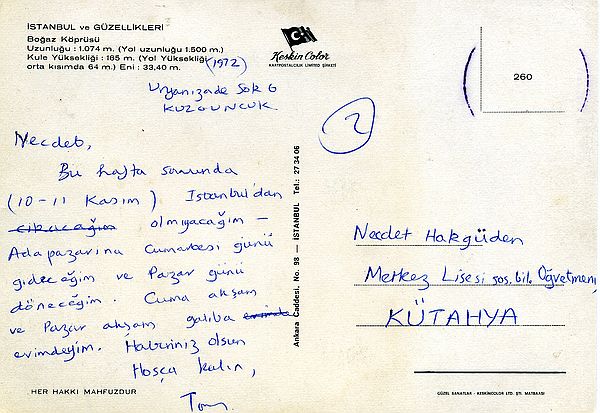 İSTANBUL ve GÜZELLİKLERİ
Boğaz Köprüsü
Uzunluğu : 1.074 m. (Yol uzunluğu 1.500 m.)
Kule Yüksekliği : 165 m. (Yol Yüksekliği
orta kısımda 64 m.) Eni : 33,40 m.
(1972)
Uryanizade Sok 6
KUZGUNCUK
Necdet,
Bu hafta sonunda
(10-11 Kasım) Istanbul'dan
çıkacağım olmıyacağım —
Adapazarına Cumartesi günü
gideceğim ve Pazar günü
döneceğim. Cuma akşam
ve Pazar akşam galiba evimde
evimdeyim. Haberiniz olsun
Hoşça kalın,
Tom
HER HAKKI MAHFUZDUR
Keskin Color
KARTPOSTALCILIK LİMİTED ŞİRKETİ
2
Ankara Caddesi, No. 98 — İSTANBUL Tel.: 27 34 06
260
Necdet Hakgüden
Merkez Lisesi sos. bil. Öğretmeni
KÜTAHYA
GÜZEL SANATLAR - KESKİNCOLOR LTD. ŞTİ. MATBAASI